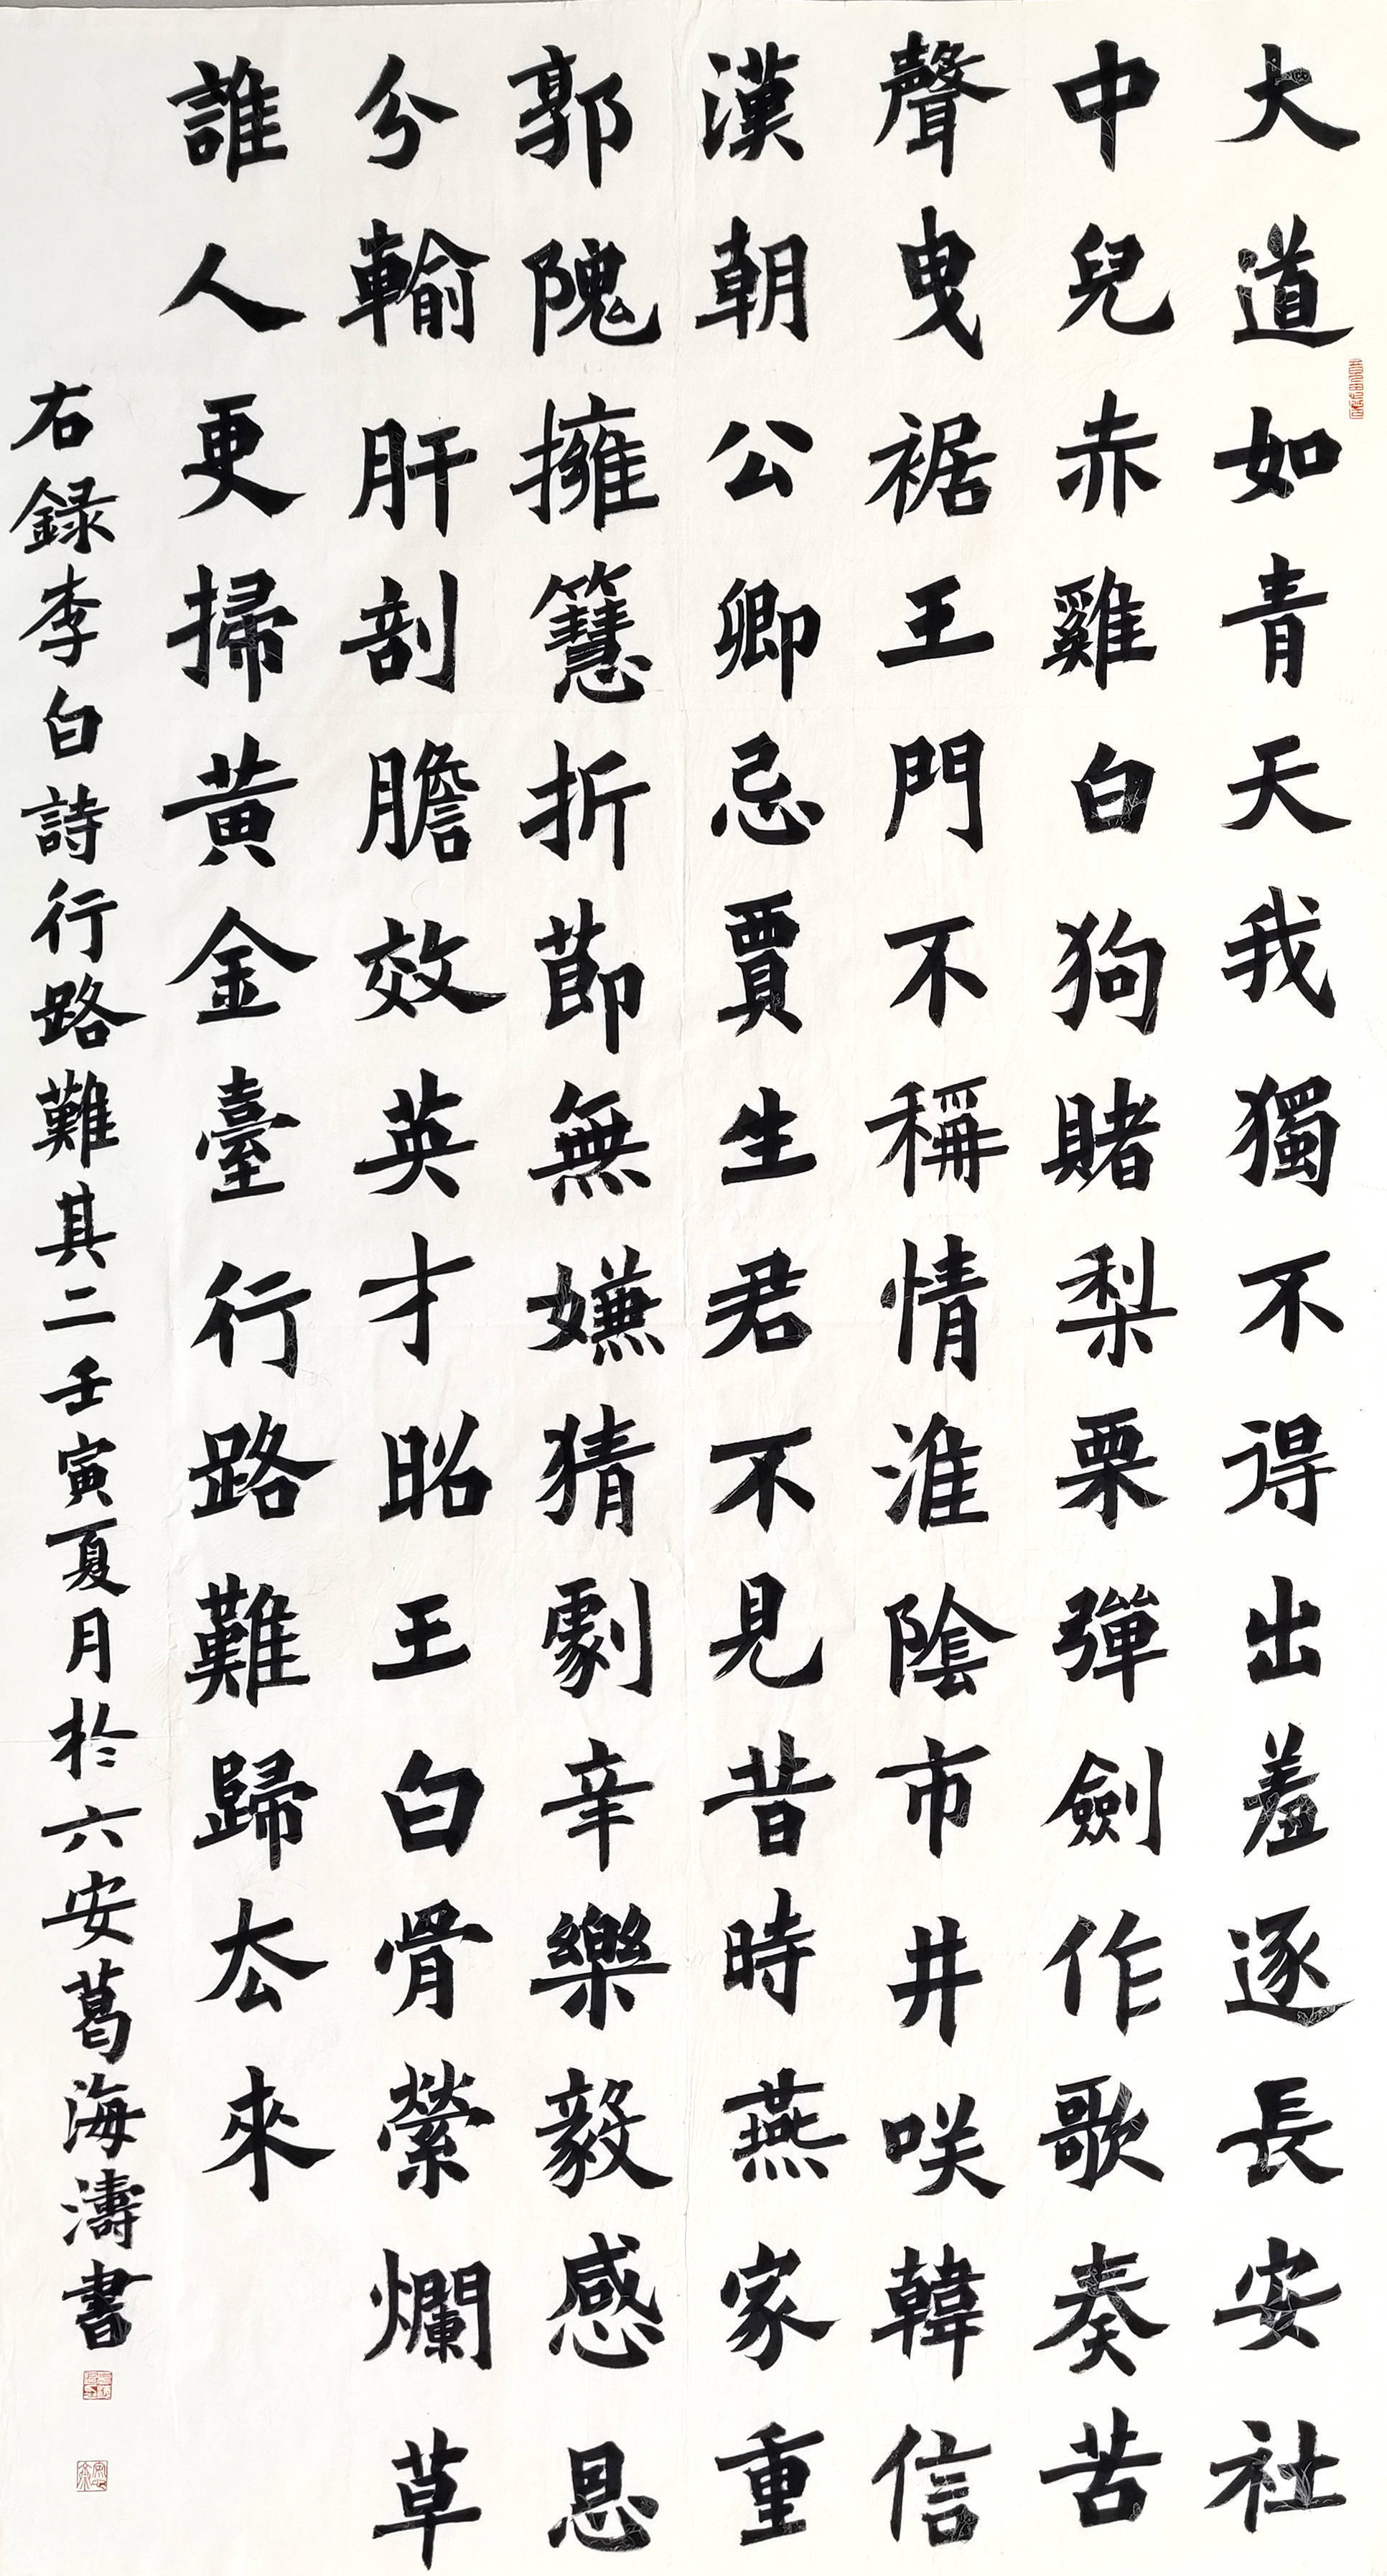 大道如青天我獨不得出羞逐長安社
中兒赤雞白狗賭梨栗彈劍作歌奏苦
聲曳裾王門不稱情淮陰市井咲韓信
漢朝公卿忌賈生君不見昔時燕家重
郭隗擁篲折節無嫌猜劇辛樂毅感恩
分輸肝剖膽效英才昭王白骨縈爛草
誰人更掃黃金臺行路難歸厺來
右録李白詩行路難其二壬寅夏月於六安葛海濤書